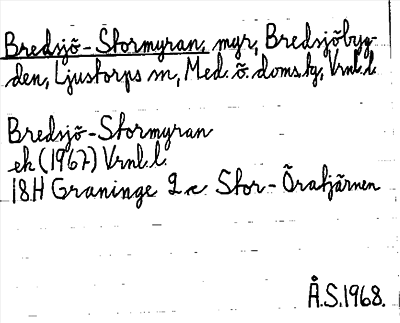 Bredsjö-Stormyran, myr, Bredsjöbyg-
den, Ljustorps sn, Med. ö. doms.tg, Vrnl. l.
Bredsjö-Stormyran
ek (1967) Vrnl. l.
18H Graninge 2c Stor-Öratjärnen
Å.S. 1968.